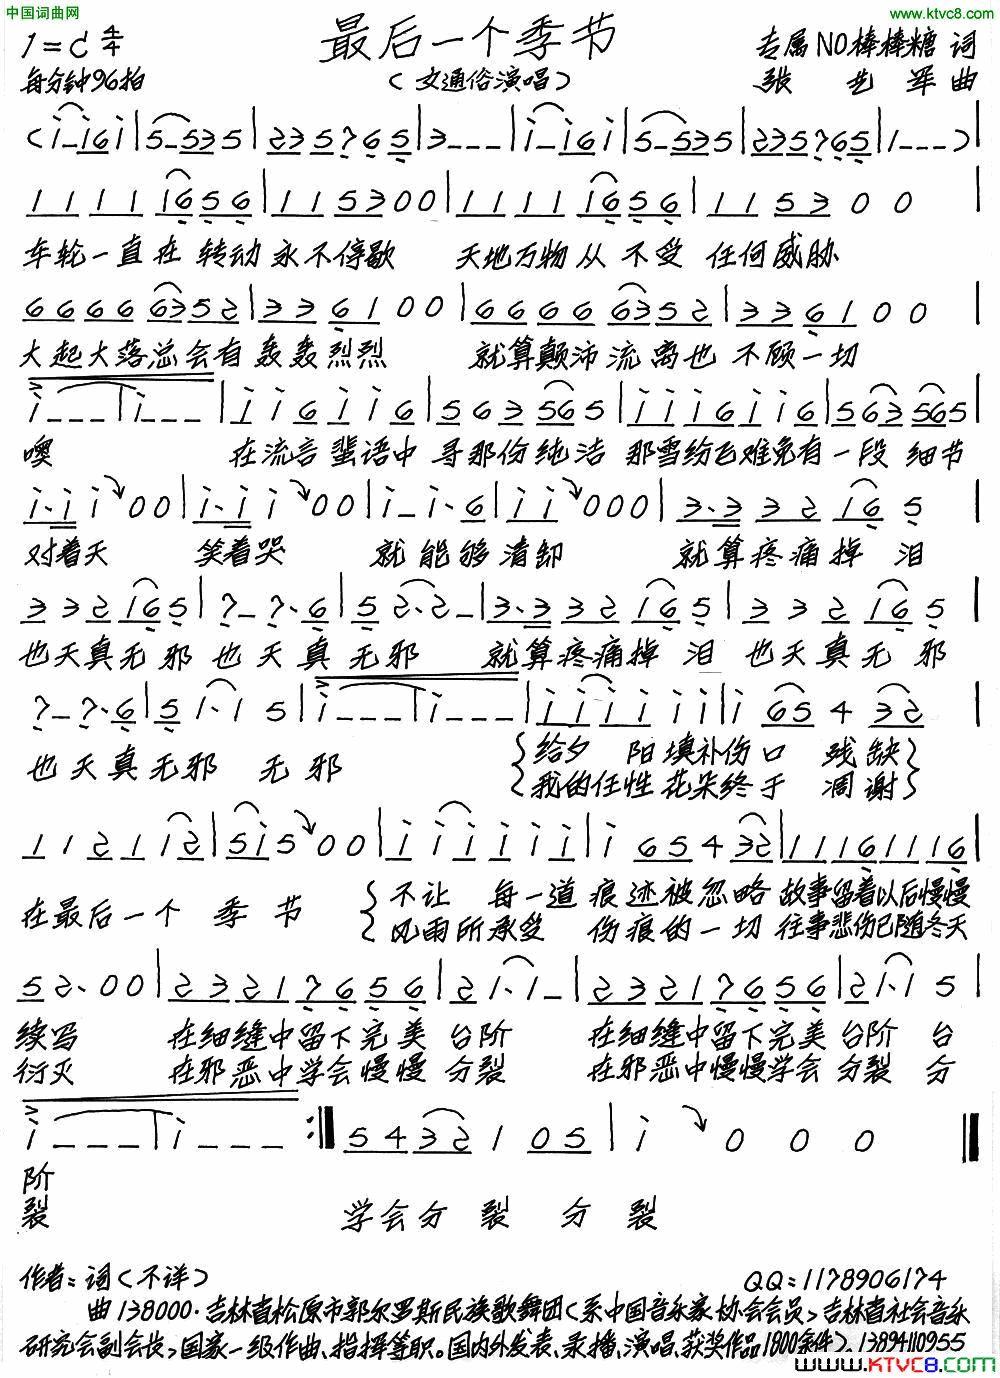 中国词曲网 www.ktvc8.com
最后一个季节
1=C 4/4 专属NO棒棒糖 词
每分钟96拍 (文通俗演唱) 张艺军 曲
(i-i6i|5-535|235765|3---|i-i6i|5-535|235765|1---)|
11111656|115300|11111656|115300|
车轮一直在转动永不停歇 天地万物从不受任何威胁
66666352|336100|66666352|336100|
大起大落总会有轰轰烈烈 就算颠沛流离也不顾一切
i---|i---|ii6ii6|563565|iii6ii6|563565|
噢 在流言蜚语中寻那份纯洁 那雪纷飞难免有一段细节
i·ii00|i·ii00|i-i·6|ii000|3·332165|
对着天 笑着哭 就能够清卸 就算疼痛掉泪
332165|7-7·6|52·2-|3·332165|332165|
也天真无邪也天真无邪 就算疼痛掉泪也天真无邪
7-7·6|51·15|i---|i---|iiiiiii|i6543 2|
也天真无邪 无邪 给夕阳填补伤口 残缺
我的任性花朵终于 凋谢
1121 12|5i500|iiiiii|i65432|11161116|
在最后一个季节 不让每一道痕迹被忽略故事留着以后慢慢
风雨所承受 伤痕的一切往事悲伤已随冬天
52·00|23217656|21·1-|23217656|21·15|
续写 在细缝中留下完美台阶 在细缝中留下完美台阶 台
衍灭 在邪恶中学会慢慢分裂 在邪恶中慢慢学会分裂 分
i---|i---:|5432105|i000|
阶
裂 学会分裂 分裂
作者:词(不详) QQ:1178906174
曲138000·吉林省松原市郭尔罗斯民族歌舞团(系中国音乐家协会会员,吉林省社会音乐
研究会副会长,国家一级作曲、指挥等职。国内外发表、录播、演唱、获奖作品1800余件).13894110955
www.KTVC8.com